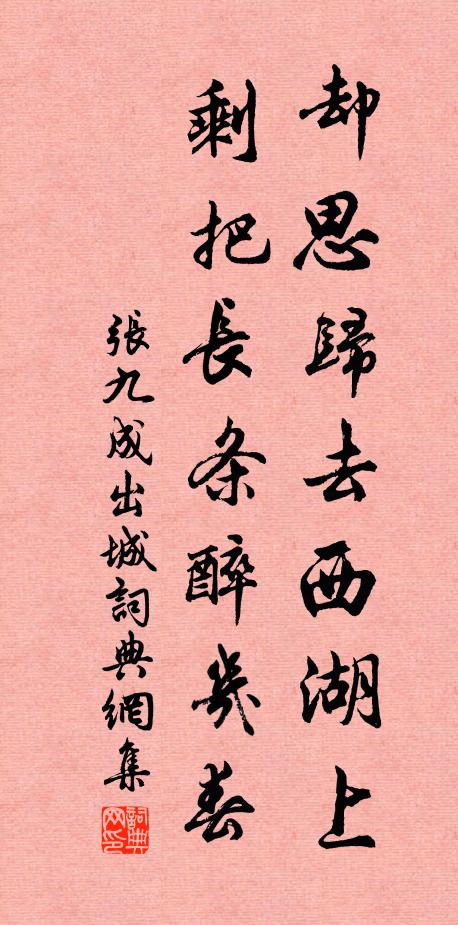 却思歸去西湖上
剩把長条醉幾春
張九成出城詞典網集
詞典网印